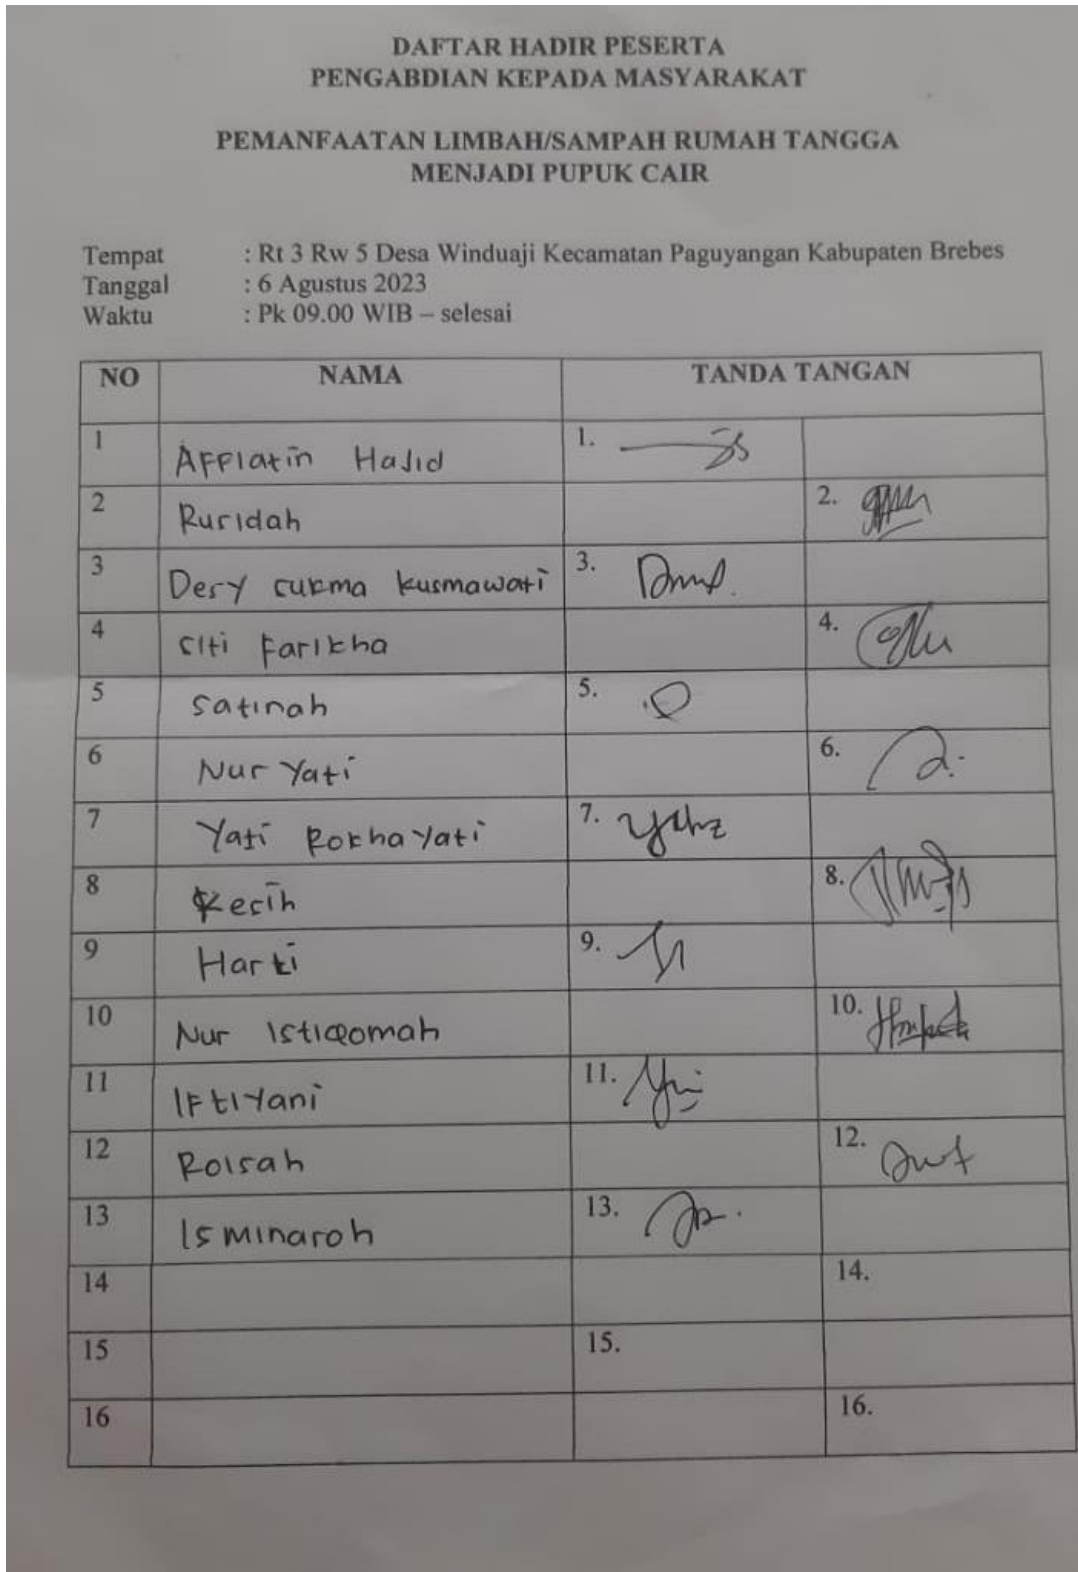 DAFTAR HADIR PESERTA
PENGABDIAN KEPADA MASYARAKAT
PEMANFAATAN LIMBAH/SAMPAH RUMAH TANGGA
MENJADI PUPUK CAIR
Tempat : Rt 3 Rw 5 Desa Winduaji Kecamatan Paguyangan Kabupaten Brebes
Tanggal : 6 Agustus 2023
Waktu : Pk 09.00 WIB – selesai
NO NAMA TANDA TANGAN
1 Afflatin Halid 1.
2 Rusidah 2.
3 Desy sukma kusmawati 3.
4 siti Farikha 4.
5 satinah 5.
6 Nur Yati 6.
7 Yati Rokhayati 7.
8 Kesih 8.
9 Harti 9.
10 Nur Istiqomah 10.
11 Iftiyani 11.
12 Roisah 12.
13 Isminaroh 13.
14 14.
15 15.
16 16.